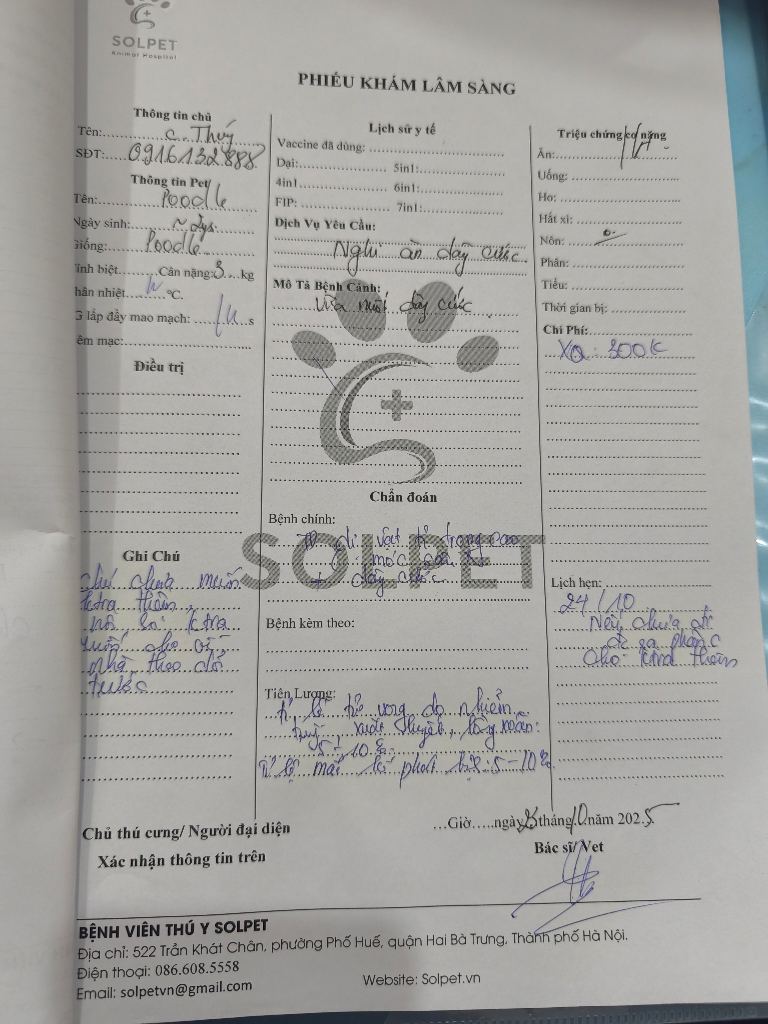 SOLPET
Animal Hospital
PHIẾU KHÁM LÂM SÀNG
Thông tin chủ
Tên: c. Thúy
SĐT: 0916132888
Thông tin Pet
Tên: Poodle
Ngày sinh: ~ 2ys
Giống: Poodle
Tính biệt Cân nặng: 3 kg
Thân nhiệt N °C.
G lấp đầy mao mạch: N s
êm mạc:
Điều trị
Ghi Chú
chủ chưa muốn
ktra thêm,
nội soi ktra
muốn cho về
nhà theo dõi
trước
Lịch sử y tế
Vaccine đã dùng:
Dại: 5in1:
4in1 6in1:
FIP: 7in1:
Dịch Vụ Yêu Cầu:
Nghi ăn dây cước
Mô Tả Bệnh Cảnh:
Vừa nuốt dây cước
Chẩn đoán
Bệnh chính:
dị vật tỉ trọng cao
móc
+ dây cước
Bệnh kèm theo:
Tiên Lượng:
tỉ lệ tử vong do nhiễm
trùng, xuất huyết, lồng xoắn:
5-10%
Tỉ lệ mất lợi phát 5-10%
Triệu chứng cơ năng
Ăn:
Uống:
Ho:
Hắt xì:
Nôn: 0
Phân:
Tiểu:
Thời gian bị:
Chi Phí:
XQ: 300K
Lịch hẹn:
24/10
Nếu chưa đi
ra phân
cho ktra thêm
Chủ thú cưng/ Người đại diện
Xác nhận thông tin trên
…Giờ…..ngày 23 tháng 10 năm 2025
Bác sĩ/ Vet
BỆNH VIỆN THÚ Y SOLPET
Địa chỉ: 522 Trần Khát Chân, phường Phố Huế, quận Hai Bà Trưng, Thành phố Hà Nội.
Điện thoại: 086.608.5558
Email: solpetvn@gmail.com
Website: Solpet.vn
SOLPET